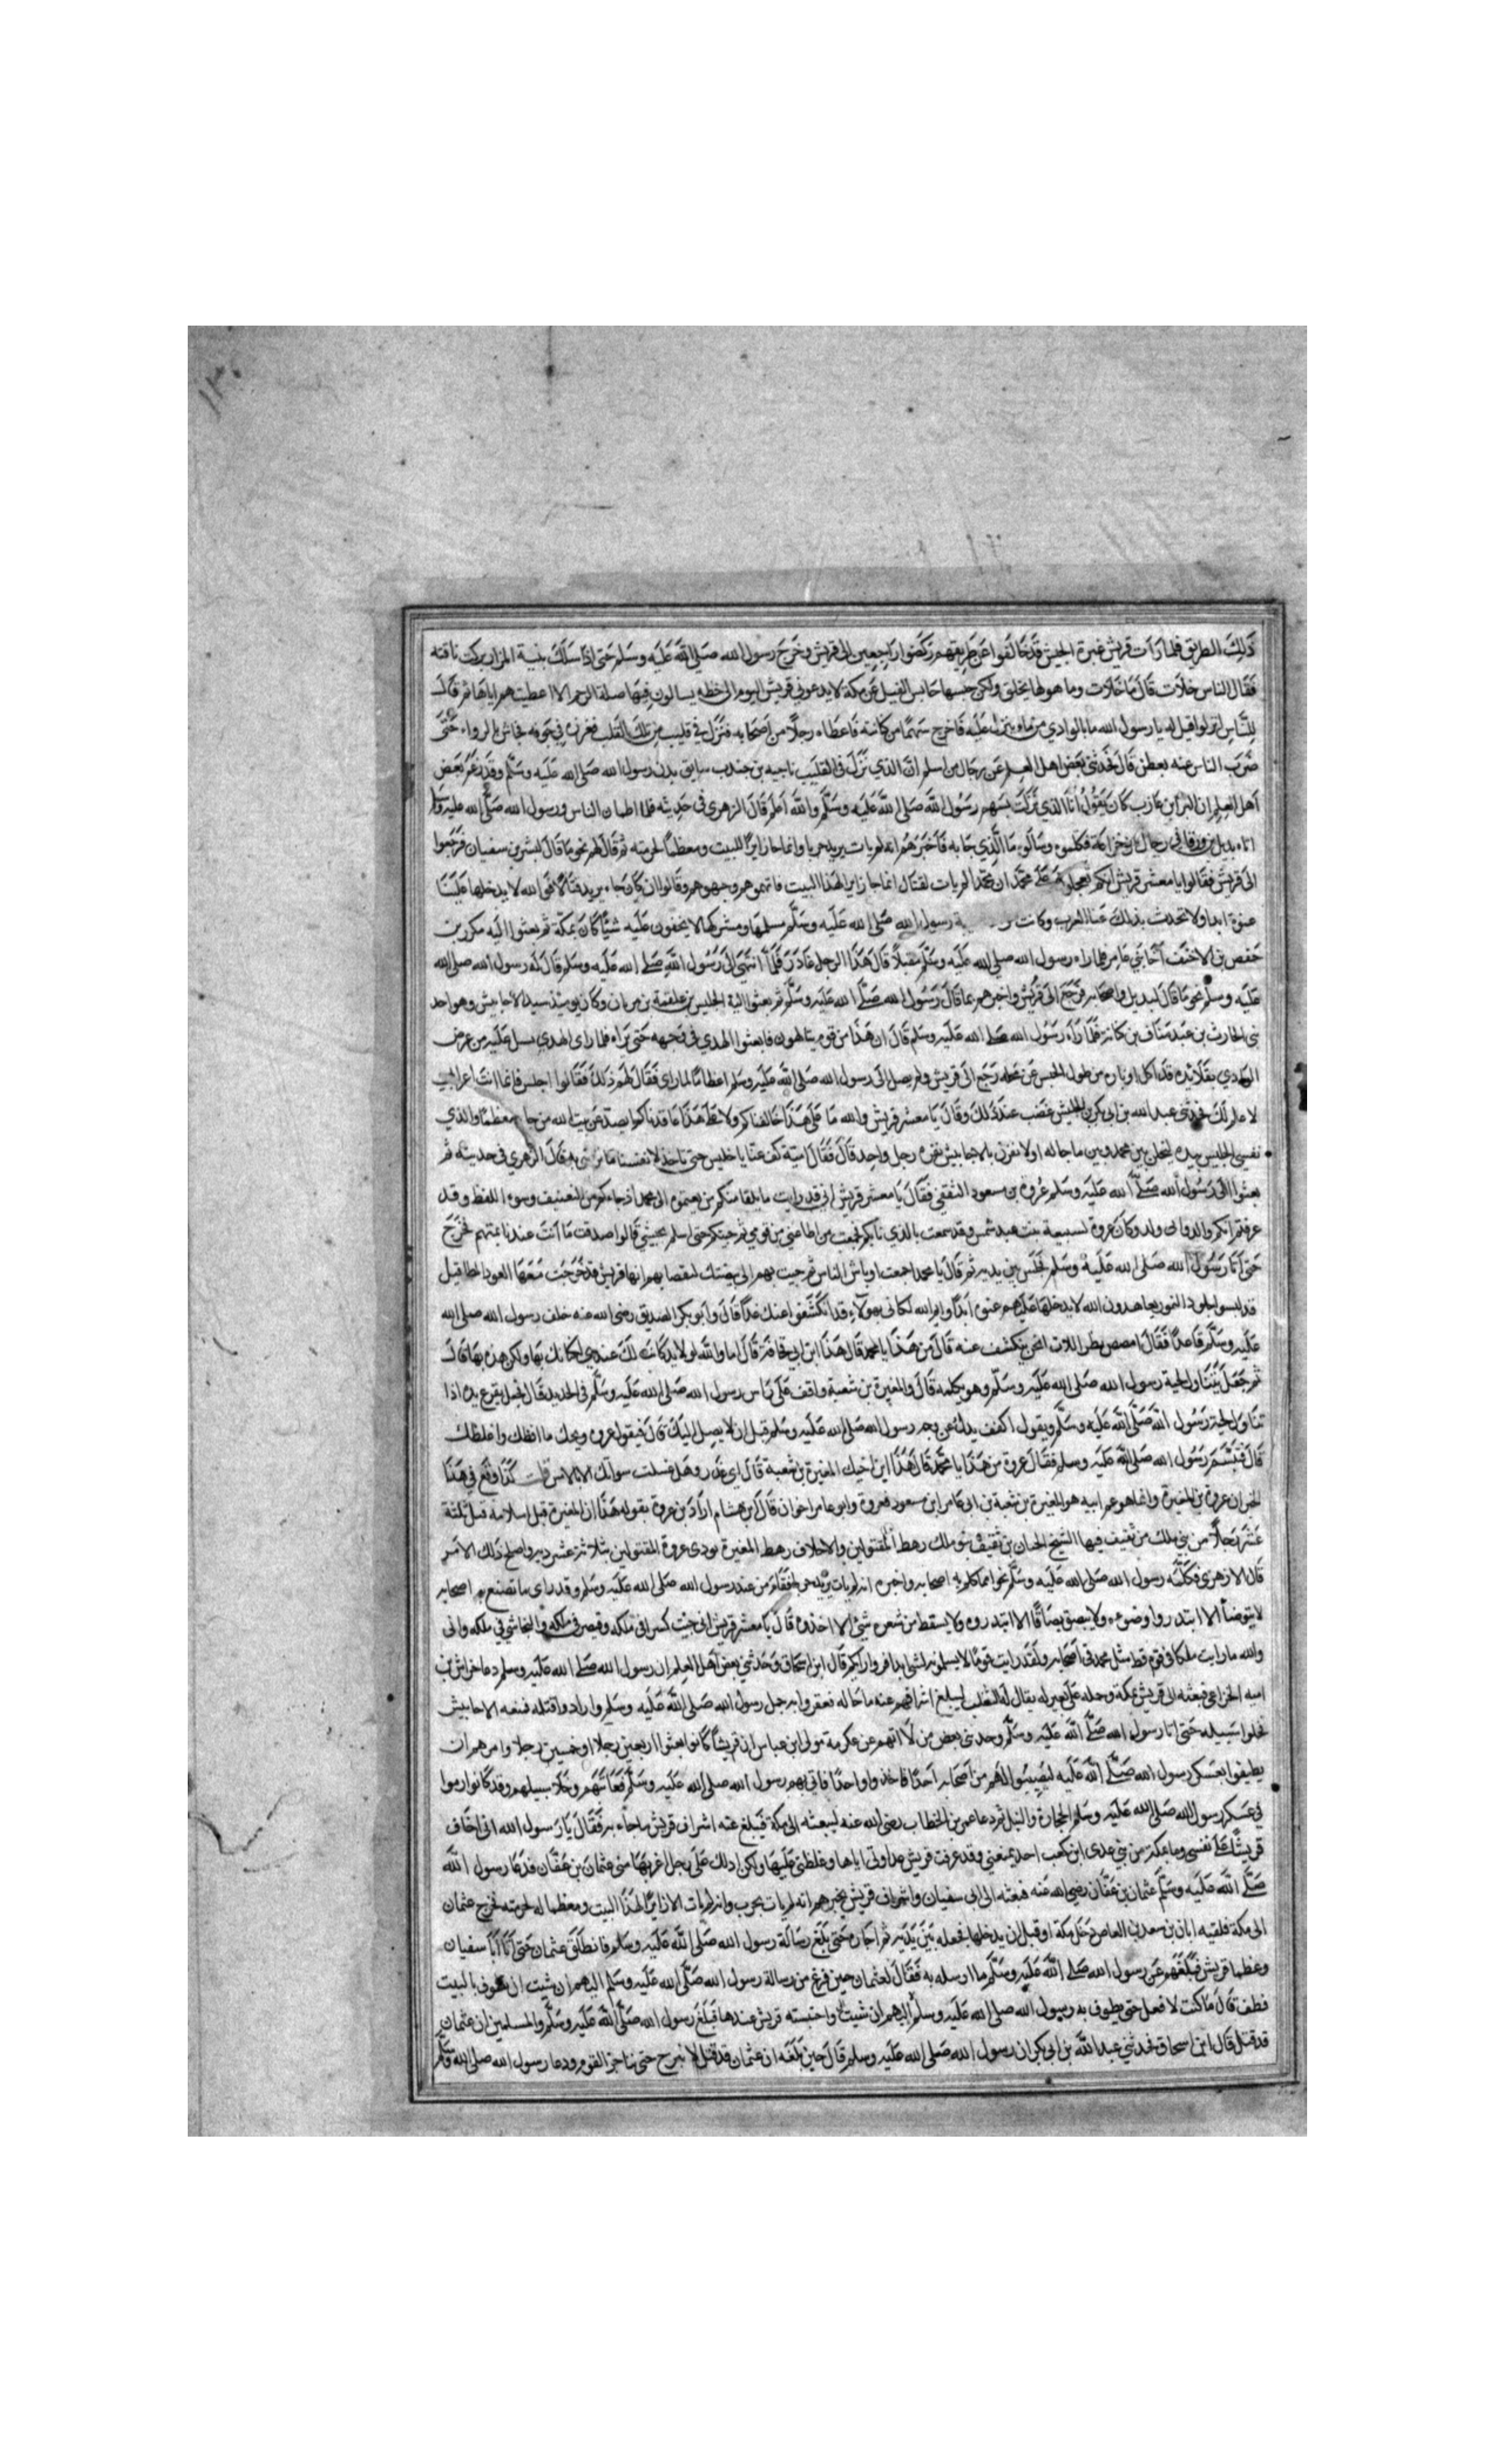 ذَلِكَ الطريق فلما رَأت قريش غبرة الجيش قد خالفوا عن طريقهم ركضوا راجعين الى قريش وخرج رسول الله صلى الله عليه وسلم حتى اذا سلك ثنية المرار بركت ناقته
فقال الناس خلات قال ما خلات وما هو لها بخلق ولكن حبسها حابس الفيل عن مكة لا يدعوني قريش اليوم الى خطه يسالون فيها صلة الرحم الا اعطيتهم اياها ثم قال
للناس انزلوا قيل له يا رسول الله ما بالوادي من ماء ينزل عليه فاخرج سهما من كنانته فاعطاه رجلا من اصحابه فنزل في قليب من تلك القلب فغرزه في جوفه فجاش بالرواء حتى
ضرب الناس عنه بعطن قال فحدثني بعض اهل العلم عن رجال من اسلم ان الذي نزل في القليب ناجيه بن جندب سايق بدن رسول الله صلى الله عليه وسلم وقد زعم بعض
اهل العلم ان البرا بن عازب كان يقول انا الذي نزلت بسهم رسول الله صلى الله عليه وسلم والله اعلم قال الزهري في حديثه فلما اطمان الناس ورسول الله صلى الله عليه
اتاه بديل بن ورقا في رجال من خزاعة فكلموه وسالوه ما الذي جا به فاخبرهم انه لم يات يريد حربا وانما جا زايرا للبيت ومعظما لحرمته ثم قال لهم نحو ما قال لبشر بن سفيان فرجعوا
الى قريش فقالوا يا معشر قريش انكم تعجلون على محمد ان محمدا لم يات لقتال انما جا زايرا لهذا البيت فاتهموهم وجبهوهم وقالوا ان كان جاء يريد قتالا فوالله لا يدخلها علينا
عنوة ابدا ولا تحدث بذلك عنا العرب وكانت رسول الله صلى الله عليه وسلم مسلمها ومشركها لا يخفون عليه شيا كان بمكة ثم بعثوا اليه مكرز بن
حفص بن الاخيف اخا بني عامر فلما راه رسول الله صلى الله عليه وسلم مقبلا قال هذا الرجل غادر فلما انتهى الى رسول الله صلى الله عليه وسلم قال له رسول الله صلى الله
عليه وسلم نحو ما قال لبديل واصحابه فرجع الى قريش واخبرهم بما قال رسول الله صلى الله عليه وسلم ثم بعثوا اليه الحليس بن علقمة بن وكان يوميذ سيد الاحابيش وهو احد
بني الحارث بن عبد مناف بن كنانة فلما راه رسول الله صلى الله عليه وسلم قال ان هذا من قوم يتالهون فابعثوا الهدي في وجهه حتى يراه فلما راى الهدي يسيل عليه من عرض
الوادي بقلايده قد اكل اوباره من طول الحبس عن محله رجع الى قريش ولم يصل الى رسول الله صلى الله عليه وسلم اعظاما لما راى فقال لهم ذلك فقالوا اجلس فانما انت اعرابي
لا علم لك فحدثني عبد الله بن ابي بكر ان الحليس غضب عند ذلك وقال يا معشر قريش والله ما على هذا حالفناكم ولا على هذا عاقدناكم ايصد عن بيت الله من جا معظما والذي
نفس الحليس بيده لتخلن بين محمد وبين ما جا له او لانفرن بالاحابيش نفرة رجل واحد قال فقال له كف عنا يا حليس حتى ناخذ لانفسنا ما نرضى به قال الزهري في حديثه ثم
بعثوا الى رسول الله صلى الله عليه وسلم عروة بن مسعود الثقفي فقال يا معشر قريش اني قد رايت ما يلقا منكم من بعثتموه الى محمد اذ جاءكم من التعنيف وسوء اللفظ وقد
عرفتم انكم والد واني ولد وكان عروة لسبيعة بنت عبد شمس وقد سمعت بالذي نابكم فجمعت من اطاعني من قومي ثم جيتكم حتى قالوا صدقت ما انت عندنا بمتهم فخرج
حتى اتا رسول الله صلى الله عليه وسلم فجلس بين يديه ثم قال يا محمد اجمعت اوباش الناس ثم جيت بهم الى بيضتك لتفضها بهم انها قريش قد خرجت معها العوذ المطافيل
قد لبسوا جلود النمور يعاهدون الله لا يدخلها عليهم عنوة ابدا وايم الله لكاني بهولاء قد انكشفوا عنك غدا قال وابو بكر الصديق رضى الله عنه خلف رسول الله صلى الله
عليه وسلم قاعدا فقال امصص بظر اللات انحن ينكشف عنه قال من هذا يا محمد قال هذا ابن ابي قحافة قال اما والله لولا يد كانت لك عندي لكافاتك بها ولكن هذه بها قال
ثم جعل يتناول لحية رسول الله صلى الله عليه وسلم وهو يكلمه قال والمغيرة بن شعبة واقف على راس رسول الله صلى الله عليه وسلم في الحديد قال فجعل يقرع يده اذا
تناول لحية رسول الله صلى الله عليه وسلم ويقول اكفف يدك عن وجه رسول الله صلى الله عليه وسلم قبل ان لا يصل اليك قال فيقول عروة ويحك ما افظك واغلظك
قال فتبسم رسول الله صلى الله عليه وسلم فقال عروة من هذا يا محمد قال هذا ابن اخيك المغيرة بن شعبة قال اي غدر وهل غسلت سواتك الا بالامس قلت كذا وقع في هذا
الخبر ان عروة بن المغيرة وانما هو عم ابيه هو المغيرة بن شعبة بن ابي عامر ابن مسعود فعروة وابو عامر اخوان قال ابن هشام اراد بن عروة بقوله هذا ان المغيرة قبل اسلامه قتل ثلثة
عشر رجلا من بني ملك من ثقيف فيها الحيان من ثقيف بنو ملك رهط المقتولين والاحلاف رهط المغيرة فودى عروة المقتولين ثلاثة عشر دية واصلح ذلك الامر
قال الازهري فكلمه رسول الله صلى الله عليه وسلم نحوا مما كلم به اصحابه واخبره انه لم يات يريد حربا فقام من عند رسول الله صلى الله عليه وسلم وقد راى ما تصنع به اصحابه
لا يتوضأ الا ابتدروا وضوءه ولا يبصق بصاقا الا ابتدروه ولا يسقط من شعره شيئ الا اخذوه قال يا معشر قريش اني جيت كسرا في ملكه وقيصر في ملكه والنجاشي في ملكه واني
والله ما رايت ملكا في قوم قط مثل محمد في اصحابه ولقد رايت قوما لا يسلمونه لشي ابدا فروا رايكم قال ابن اسحاق وحدثني بعض اهل العلم ان رسول الله صلى الله عليه وسلم دعا خراش بن
اميه الخزاعي فبعثه الى قريش بمكة وحمله على بعير له يقال له الثعلب ليبلغ اشرافهم عنه ما جا له فعقروا به جمل رسول الله صلى الله عليه وسلم وارادوا قتله فمنعه الاحابيش
فخلوا سبيله حتى اتا رسول الله صلى الله عليه وسلم وحدثني بعض من لا اتهم عن عكرمة مولى ابن عباس ان قريشا كانوا بعثوا اربعين رجلا او خمسين رجلا وامرهم ان
يطيفوا بعسكر رسول الله صلى الله عليه ليصيبوا لهم من اصحابه احدا فاخذوا واحدا فاتي بهم رسول الله صلى الله عليه وسلم فعفا عنهم وخلا سبيلهم وقد كانوا رموا
في عسكر رسول الله صلى الله عليه وسلم بالحجارة والنبل ثم دعا عمر بن الخطاب رضى الله عنه ليبعثه الى مكة فيبلغ عنه اشراف قريش ما جاء به فقال يا رسول الله اني اخاف
قريشا على نفسي وما بمكة من بني عدي ابن كعب احد يمنعني وقد عرفت قريش عداوتي اياها وغلظتي عليها ولكن ادلك على رجل اعز بها مني عثمان بن عفان فدعا رسول الله
صلى الله عليه وسلم عثمان بن عفان رضي الله عنه فبعثه الى ابي سفيان واشراف قريش يخبرهم انه لم يات بحرب وانه لم يات الا زايرا لهذا البيت ومعظما له لحرمته فخرج عثمان
الى مكة فلقيه ابان بن سعد بن العاص دخل مكة او قبل ان يدخلها فجعله بين يديه ثم اجاره حتى بلغ رسالة رسول الله صلى الله عليه وسلم فانطلق عثمان حتى اتا ابا سفيان
وعظما قريش فبلغهم عن رسول الله صلى الله عليه وسلم ما ارسله به فقال لعثمان حين فرغ من رسالة رسول الله صلى الله عليه وسلم اليهم ان شيت ان تطوف بالبيت
فطف قال ما كنت لافعل حتى يطوف به رسول الله صلى الله عليه وسلم اليهم ان شيت واحتبسته قريش عندها فبلغ رسول الله صلى الله عليه وسلم والمسلمين ان عثمان
قد قتل قال ابن اسحاق فحدثني عبد الله بن ابي بكر ان رسول الله صلى الله عليه وسلم قال حين بلغه ان عثمان قد قتل لا نبرح حتى نناجز القوم ودعا رسول الله صلى الله عليه وسلم